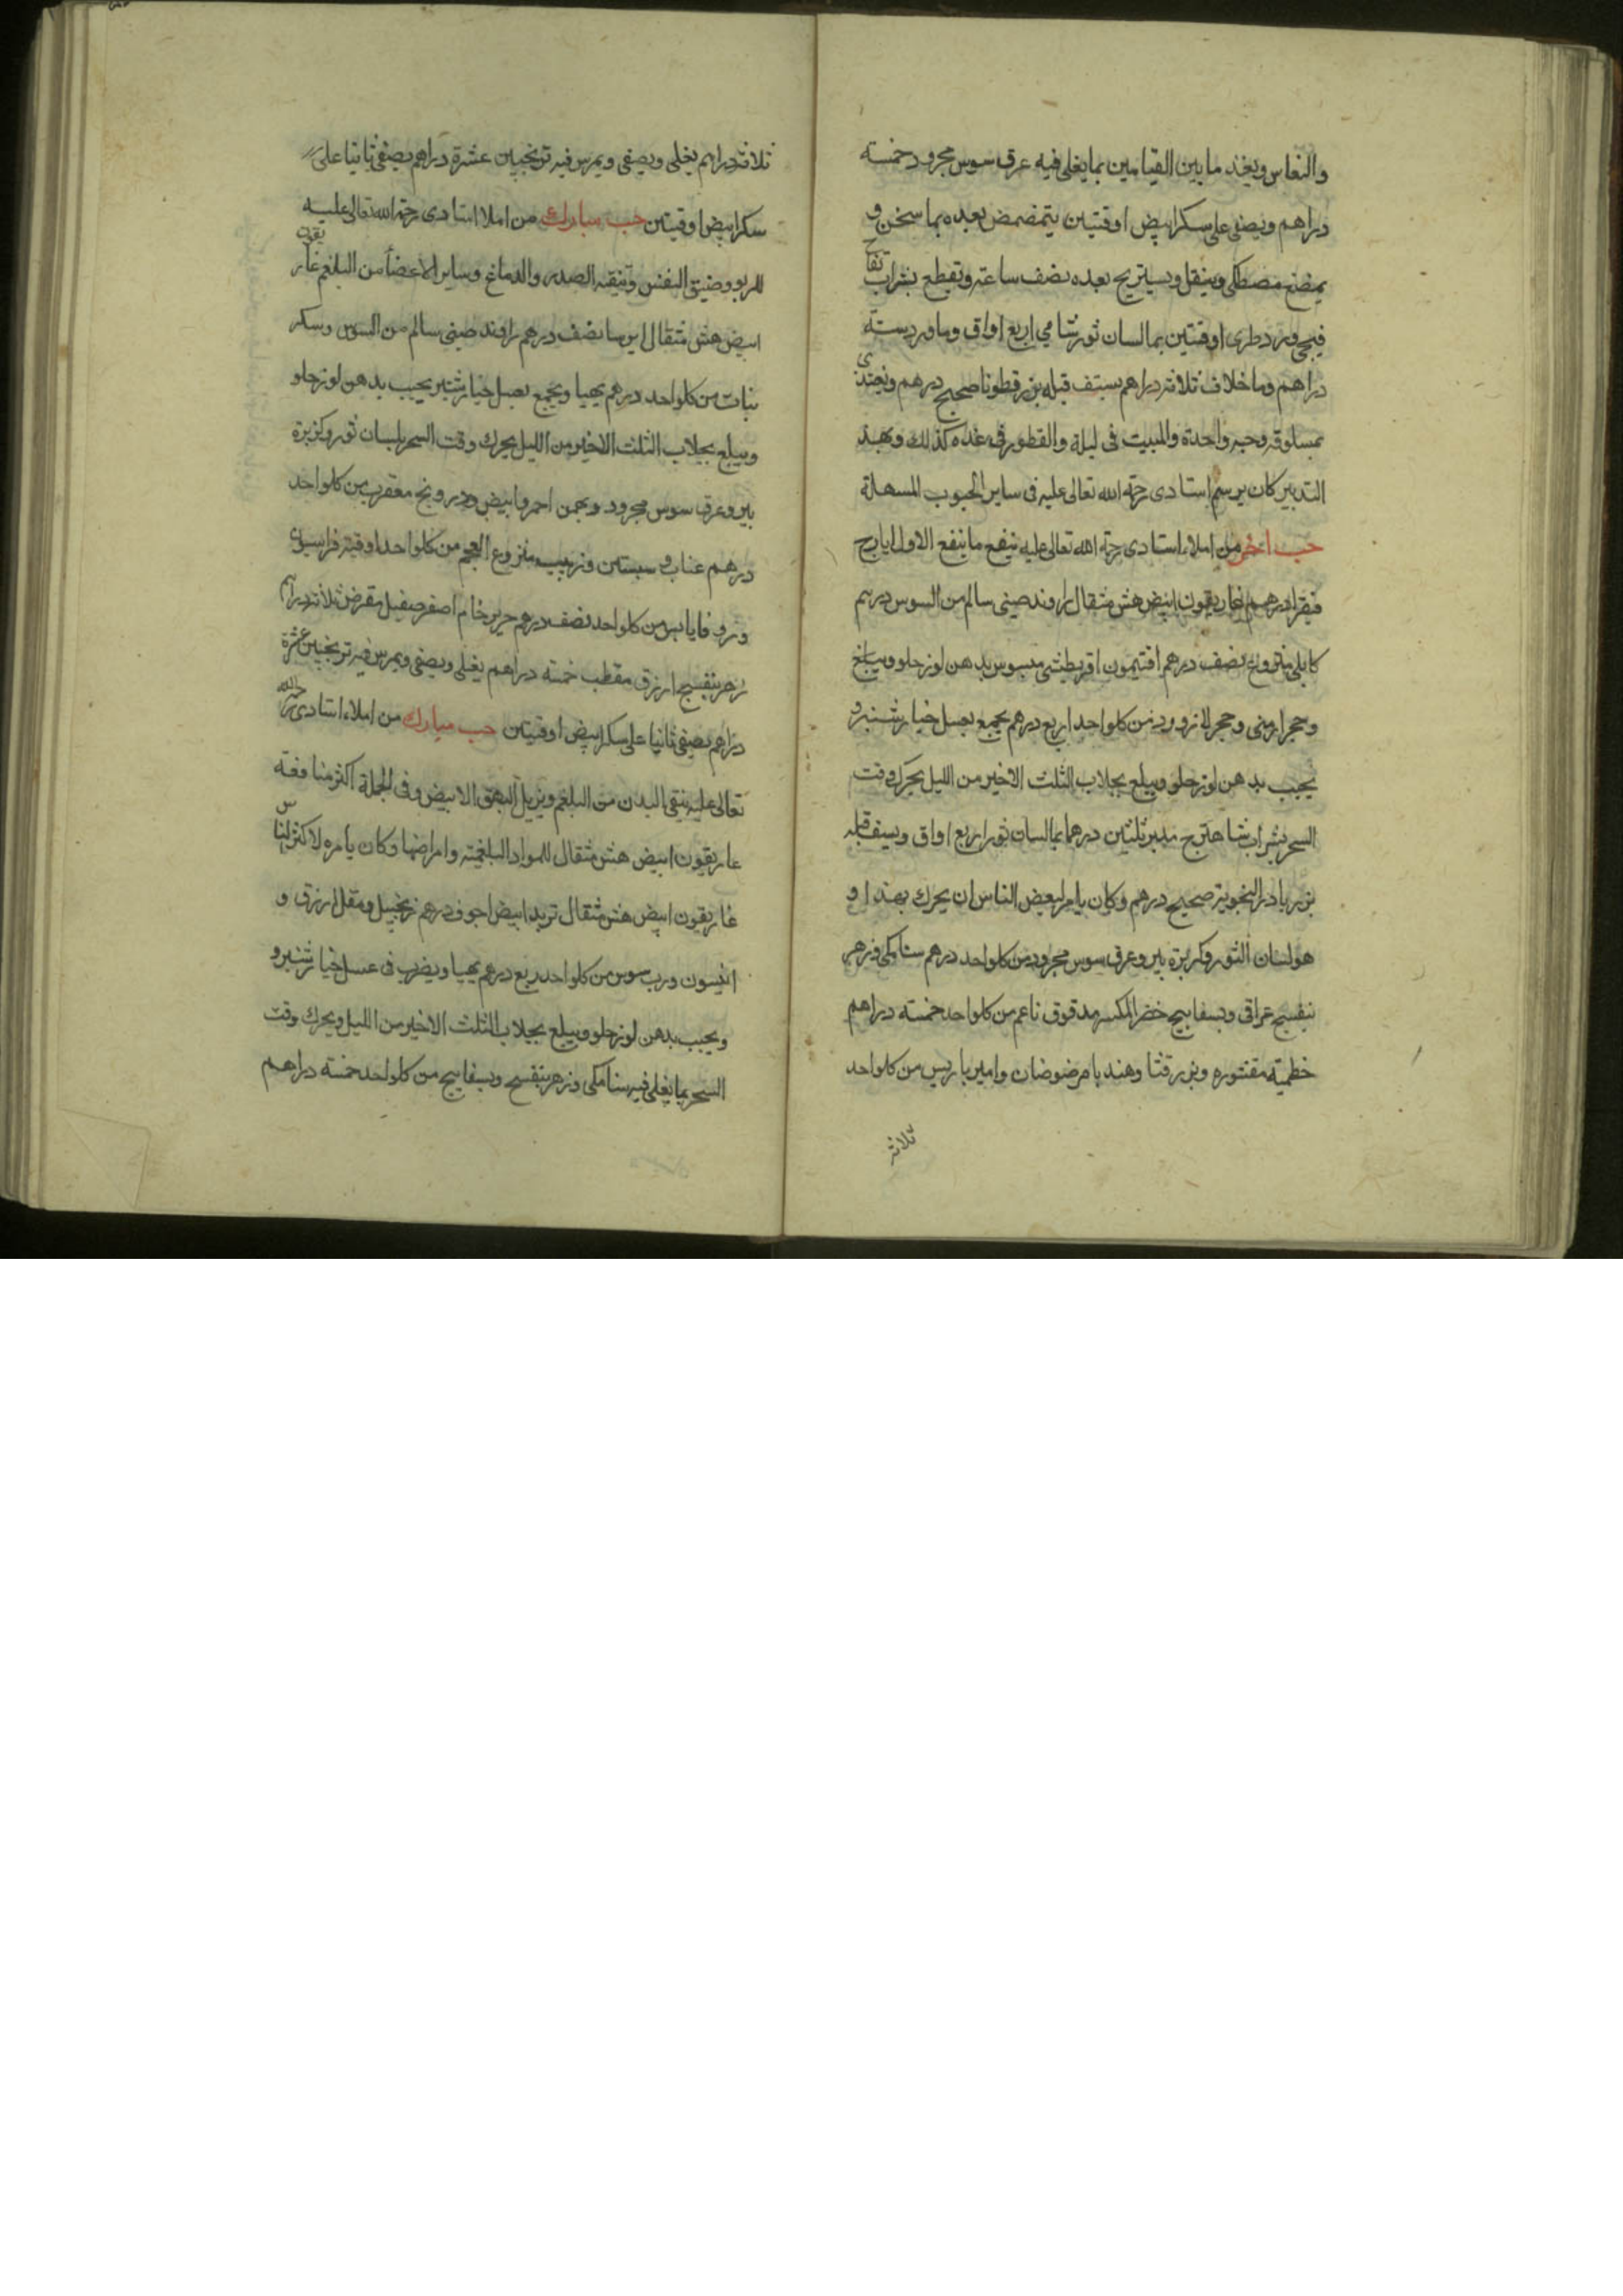 والنعاس ويغذ ما بين القيامين بما يغلى فيه عرق سوس مجرود خمسة
دراهم ويصفى على سكر ابيض اوقتين يتمضمض بعده بما سخن و
يمضغ مصطكى ويتنقل ويستريح بعده نصف ساعة وتقطع بشراب تفاح
فتحى وورد طرى اوقتين بما لسان ثور شامي اربع اواق وماورد ستة
دراهم وما خلاف ثلاثة دراهم يستف قبله بزر قطونا صحيح درهم ويغتذى
بمسلوقه وحبه واحدة والمبيت فى ليلة والفطور فى غده كذلك وبهذ
التدبير كان يرسم استادى رحمة الله تعالى عليه فى ساير الحبوب المسهلة
حب اخر من املاء استادى رحمة الله تعالى عليه ينفع ما ينفع الاول ايارج
فيقرا درهم غاريقون ابيض هش مثقال راوند صينى سالم من السوس درهم
كابلى منزوع نصف درهم افتيمون اقريطشى مبسوس بدهن لوز حلو
وحجر ارمنى وحجر لازورد من كلواحد اربع درهم يجمع بعسل خيار شنبر و
يحبب بدهن لوز حلو ويبلع بجلاب الثلث الاخير من الليل يحرك وقت
السحر بشراب شاهترج مدبر ثلثين درهما بما لسان ثور اربع اواق ويستف قبله
بزر بادرنجبوية صحيح درهم وكان يامر لبعض الناس ان يحرك بهذا و
هو لسان الثور وكزبرة بير وعرق سوس مجرود من كلواحد درهم سنا مكى وزهر
بنفسج عراقى وبسفايج خضر المكسر مدقوق ناعم من كلواحد خمسة دراهم
خطمية مقشوره وبزر قثا وهندبا مرضوضان وامير باريس من كلواحد
ثلاثة
ثلاثة دراهم يغلى ويصفى ويمرس فيه ترنجبين عشرة دراهم يصفى ثانيا على
سكر ابيض اوقيتين حب مبارك من املا استادى رحمة الله تعالى عليه
للربو وضيق النفس وتنقية الصدر والدماغ وساير الاعضأ من البلغم غاريقون
ابيض هش مثقال ايرسا نصف درهم راوند صينى سالم من السوس وسكر
نبات من كلواحد درهم يهيا ويجمع بعسل خيار شنبر يحبب بدهن لوز حلو
ويبلع بجلاب الثلث الاخير من الليل يحرك وقت السحر بلسان ثور وكزبرة
بير وعرق سوس مجرود وبهمن احمر وابيض ودرونج معقرب من كلواحد
درهم عناب و سبستن وزبيب منزوع العجم من كلواحد اوقية فراسيون
وزوفا يابس من كلواحد نصف درهم حرير خام اصفر مقرض ثلاثة دراهم
زهر بنفسج ازرق مقطب خمسة دراهم يغلى ويصفى ويمرس فيه ترنجبين عشرة
دراهم يصفى ثانيا على سكر ابيض اوقتين حب مبارك من املاء استادى رحمه الله
تعالى عليه ينقى البدن من البلغم ويزيل البهق الابيض وفى الجملة اكثر منافعة
غاريقون ابيض هش مثقال للمواد البلغمية وامراضها وكان يأمره لاكثر الناس
غاريقون ابيض هش مثقال تربد ابيض اجوف درهم زنجبيل ومقل ازرق و
انيسون ورب سوس من كلواحد ربع درهم يهيا ويضرب فى عسل خيار شنبر و
ويحبب بدهن لوز حلو ويبلع بجلاب الثلث الاخير من الليل ويحرك وقت
السحر بما يغلى فيه سنا مكى وزهر بنفسج وبسفايج من كلواحد خمسة دراهم